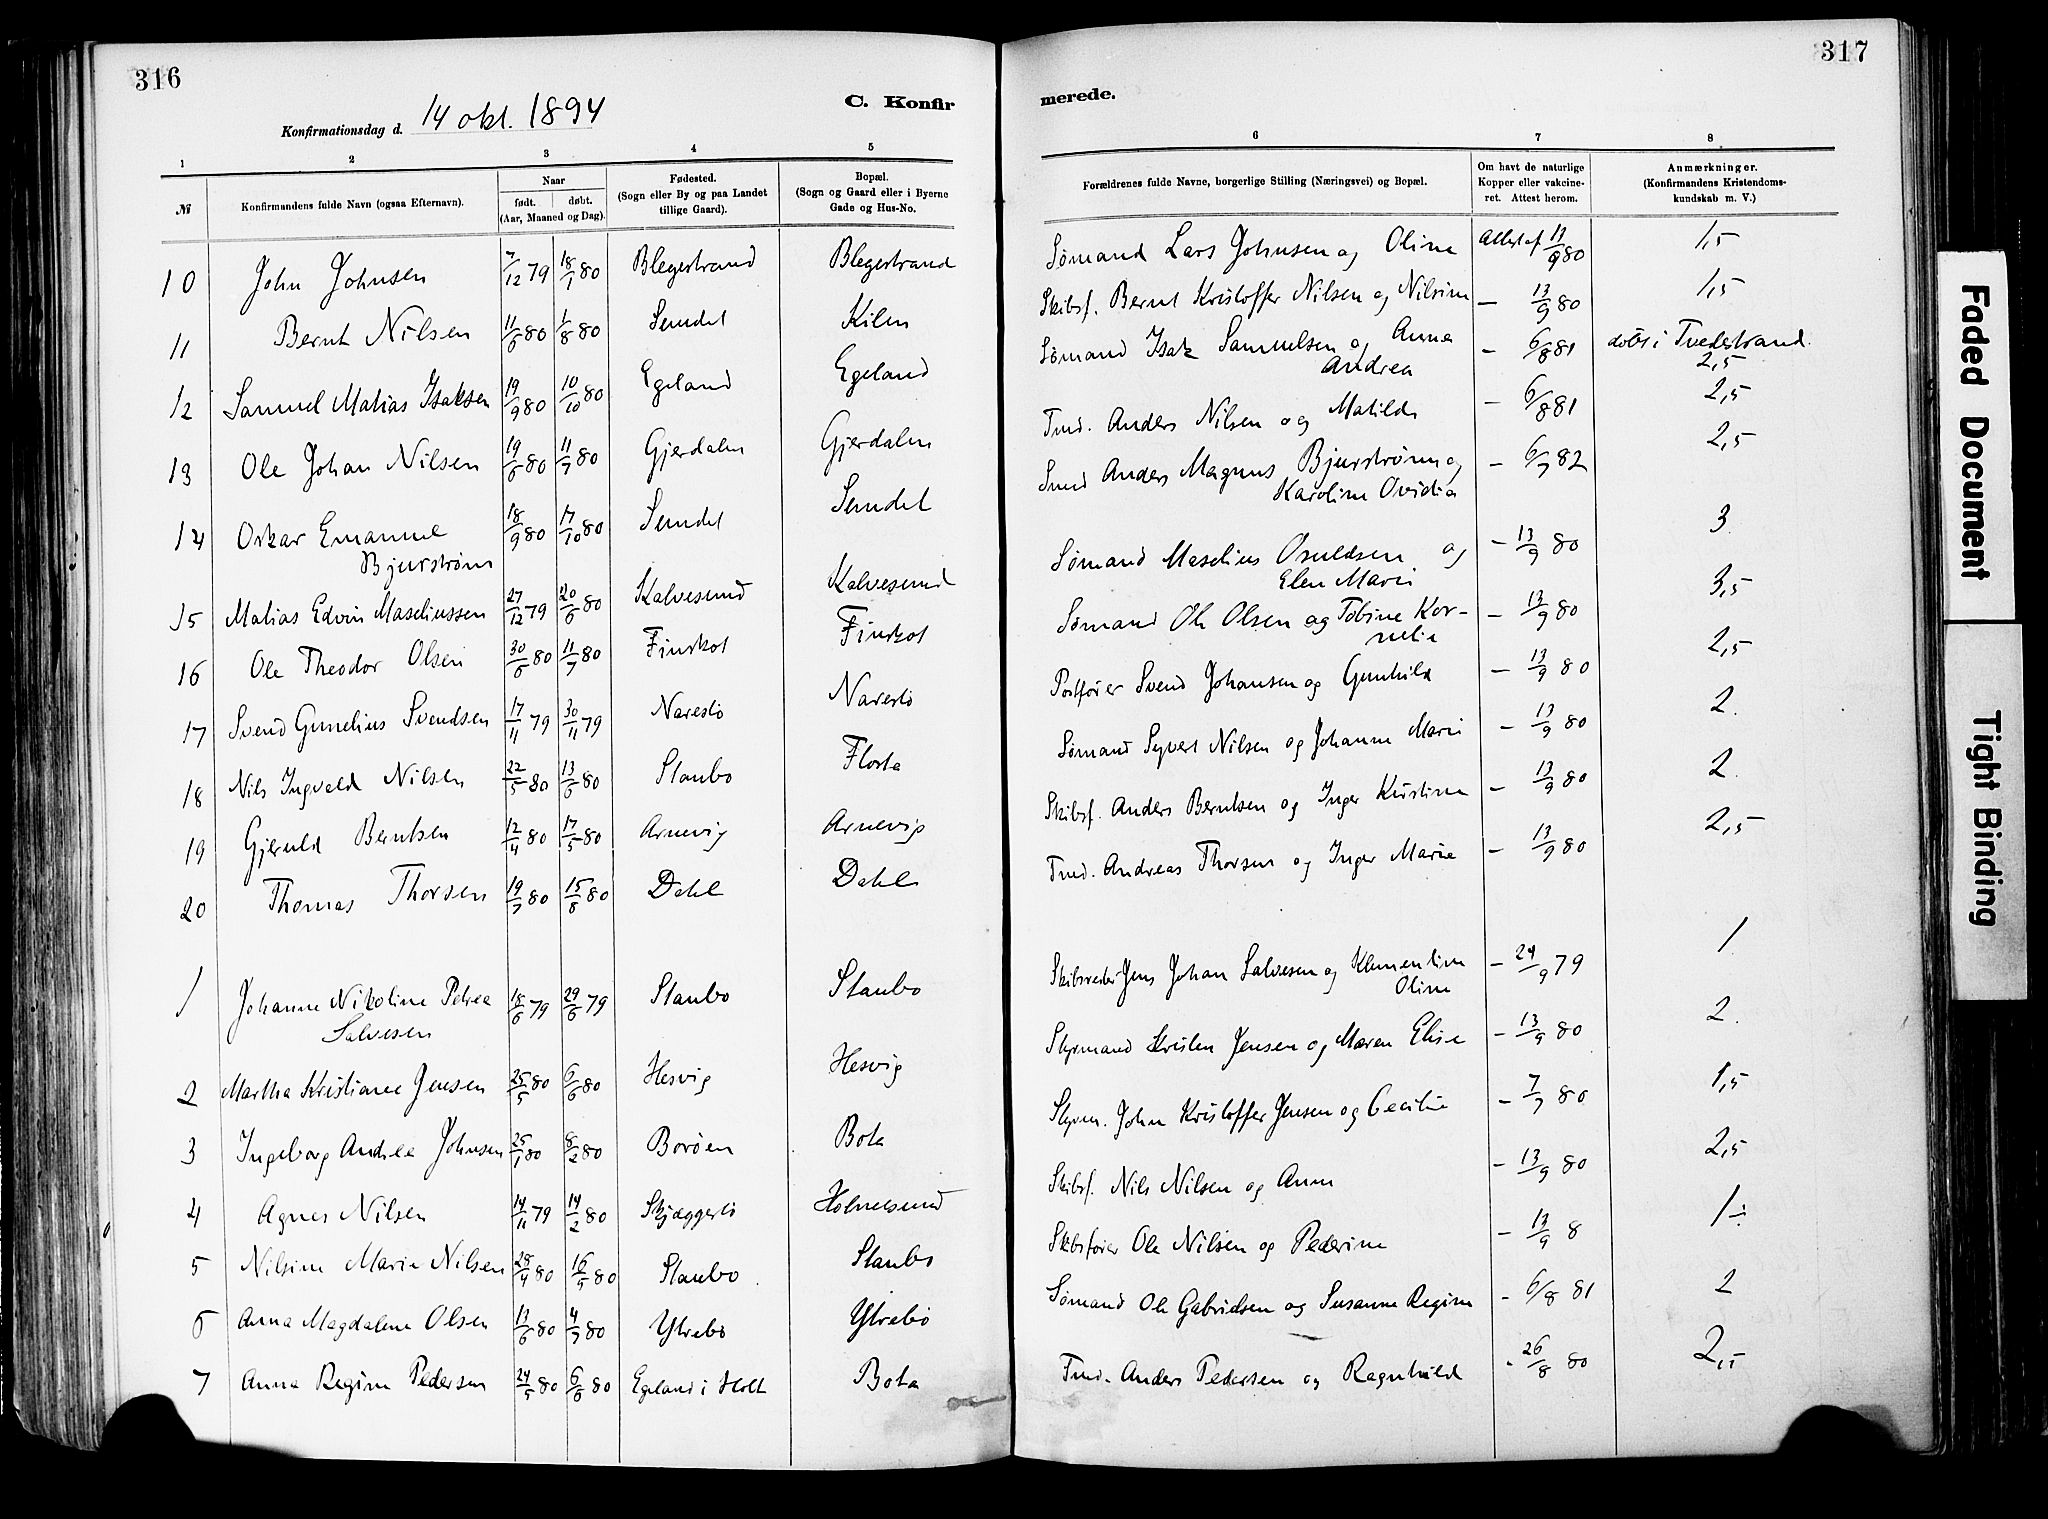 316
C. Konfir
Konfirmationsdag d. 14 okt. 1894
1 2 3 4 5
№ Konfirmandens fulde Navn (ogsaa Efternavn). Naar født. døbt. (Aar, Maaned og Dag). Fødested. (Sogn eller By og paa Landet tillige Gaard). Bopæl. (Sogn og Gaard eller i Byerne Gade og Hus-No.
10 John Johnsen 7/12 79 18/1 80 Blegestrand Blegestrand
11 Bernt Nilsen 11/6 80 1/8 80 Semdet Kilen
12 Samuel Matias Isaksen 19/9 80 10/10 80 Egeland Egeland
13 Ole Johan Nilsen 19/6 80 11/7 80 Gjerdalen Gjerdalen
14 Oskar Emanuel 18/9 80 17/10 80 Semdet Semdet
Bjurstrøm
15 Matias Edvin Maseliussen 27/12 79 20/6 80 Kalvesund Kalvesund
16 Ole Theodor Olsen 30/6 80 11/7 80 Finskot Finskot
17 Svend Gunelius Svendsen 17/11 79 30/11 79 Narestø Narestø
18 Nils Ingvald Nilsen 22/5 80 13/6 80 Staubo Flosta
19 Gjeruld Berntsen 12/4 80 17/5 80 Arnevig Arnevig
20 Thomas Thorsen 19/7 80 15/8 80 Dahl Dahl
1 Johanne Nikoline Petrea 18/6 79 29/6 79 Staubo Staubo
Salvesen
2 Martha Kristiane Jensen 25/5 80 6/6 80 Hesvig Hesvig
3 Ingeborg Andrea Johnsen 25/1 80 8/2 80 Borøen Bota
4 Agnes Nilsen 14/11 79 14/2 80 Skjæggestø Holmesund
5 Nilsine Marie Nilsen 28/4 80 16/5 80 Staubo Staubo
6 Anna Magdalene Olsen 13/6 80 4/7 80 Ytrebø Ytrebø
7 Anna Regine Pedersen 24/5 80 6/6 80 Egeland i Holt Bota
317
merede.
6 7 8
Forældrenes fulde Navne, borgerlige Stilling (Næringsvei) og Bopæl. Om havt de naturlige Kopper eller vakcineret. Attest herom. Anmærkninger. (Konfirmandens Kristendomskundskab m. V.)
Sømand Lars Johnsen og Oline Attest af 11/9 80 1,5
Skibsf. Bernt Kristoffer Nilsen og Nilsine — 13/9 80 1,5
Sømand Isak Samuelsen og Anna — 6/8 81 døbt i Tvedestrand.
Andrea 2,5
Tmd. Anders Nilsen og Matilde — 6/8 81 2,5
Smed Anders Magnus Bjurstrøm og — 6/7 82 2,5
Karoline Ovidia
Sømand Maselius Osuldsen og — 13/9 80 3
Elen Marie
Sømand Ole Olsen og Tobine Kor- — 13/9 80 3,5
nelia
Postfører Svend Johansen og Gunhild — 13/9 80 2,5
Sømand Syvert Nilsen og Johanne Marie — 13/9 80 2.
Skibsf. Anders Berntsen og Inger Kristine — 13/9 80 2.
Tmd. Andreas Thorsen og Inger Marie — 13/9 80 2,5
Skibsreder Jens Johan Salvesen og Klementine — 24/9 79 1
Oline
Styrmand Kristen Jensen og Maren Elise — 13/9 80 2.
Styrm. John Kristoffer Jensen og Cecilie — 7/7 80 1,5
Skibsf. Nils Nilsen og Anne — 13/9 80 2,5
Skibsfører Ole Nilsen og Pederine — 13/9 8 1÷
Sømand Ole Gabrielsen og Susanne Regine - 6/8 81 2
Tmd. Anders Pedersen og Ragnhild - 26/8 80 2,5
Faded Document
Tight Binding